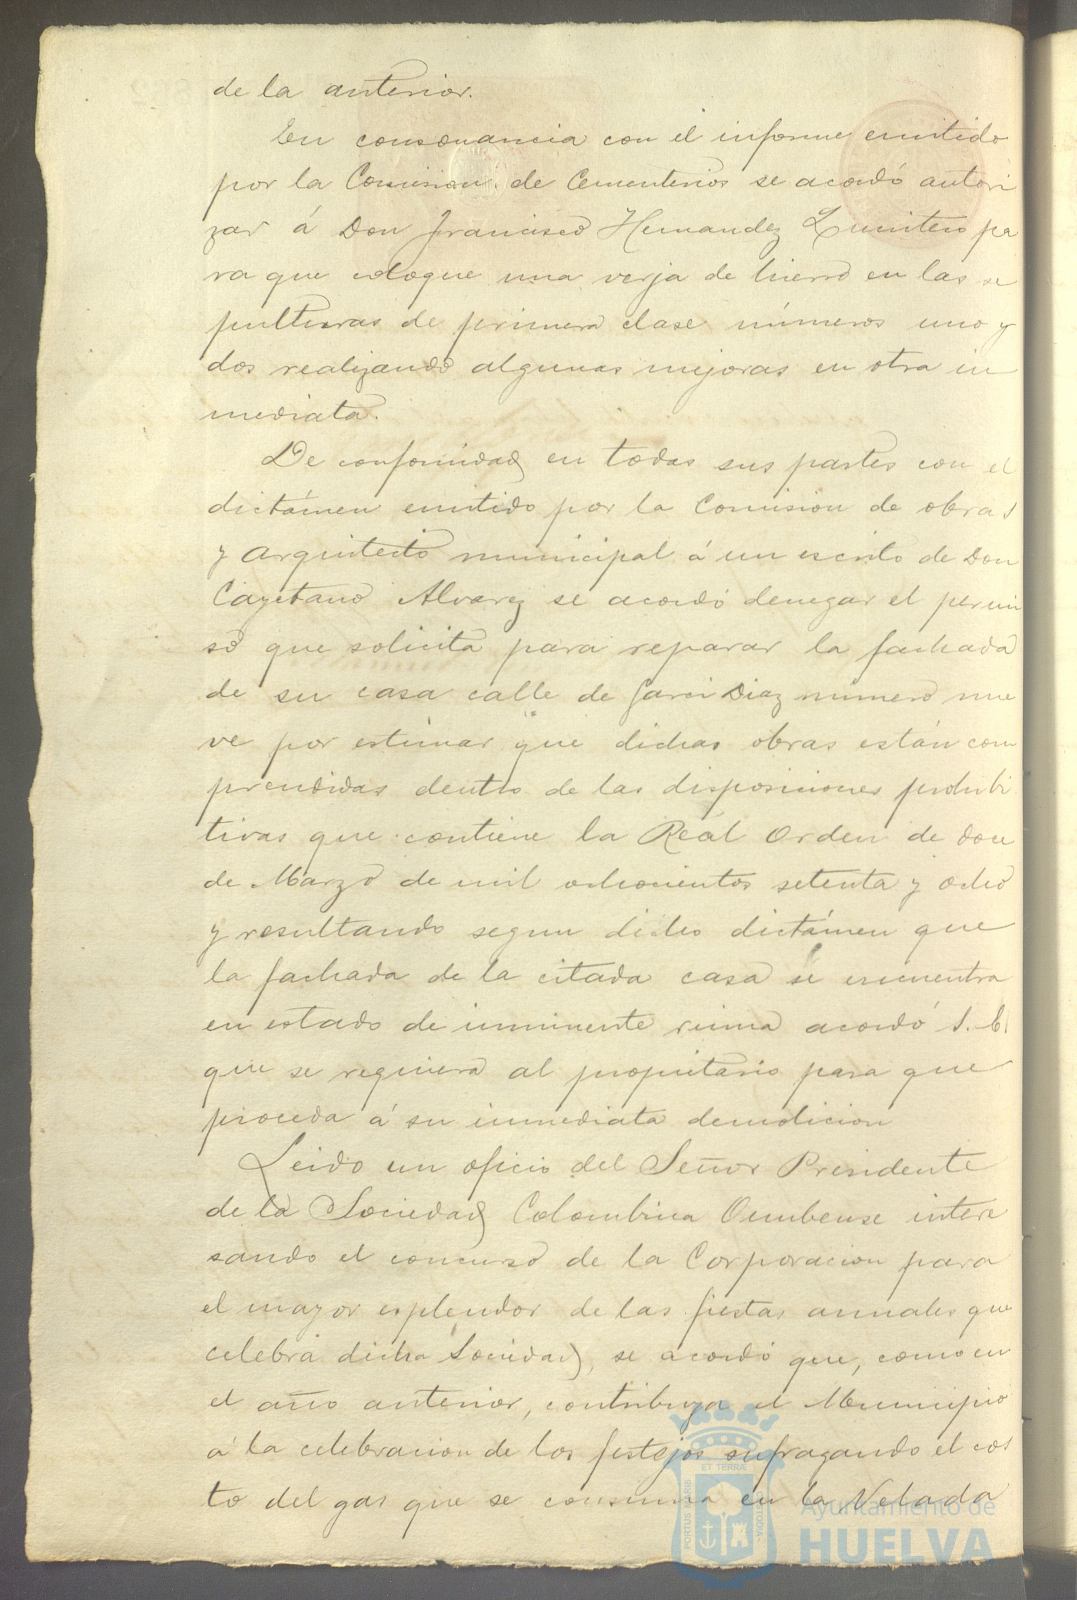 de la anterior.
En consonancia con el informe emitido
por la Comision de Cementerios se acordó autori
zar á Don Francisco Hernandez Quintero pa
ra que coloque una verja de hierro en las se
pulturas de primera clase números uno y
dos realizando algunas mejoras en otra in
mediata.
De conformidad en todas sus partes con el
dictámen emitido por la Comision de obras
y Arquitecto municipal á un escrito de Don
Cayetano Alvarez se acordó denegar el permi
so que solicita para reparar la fachada
de su casa calle de Garci Diaz número nue
ve por estimar que dichas obras están com
prendidas dentro de las disposiciones prohibi
tivas que contiene la Real Orden de doce
de Marzo de mil ochocientos setenta y ocho
y resultando segun dicho dictámen que
la fachada de la citada casa se encuentra
en estado de inminente ruina acordó S. E.
que se requiera al propietario para que
proceda á su inmediata demolicion
Leido un oficio del Señor Presidente
de la Sociedad Colombina Onubense intere
sando el concurso de la Corporacion para
el mayor esplendor de las fiestas anuales que
celebra dicha Sociedad, se acordó que, como en
el año anterior, contribuya el Municipio
á la celebracion de los festejos sufragando el cos
to del gas que se consuma en la Velada
ET TERRÆ
PORTUS MARIS
CUSTODIA
Ayuntamiento de
HUELVA